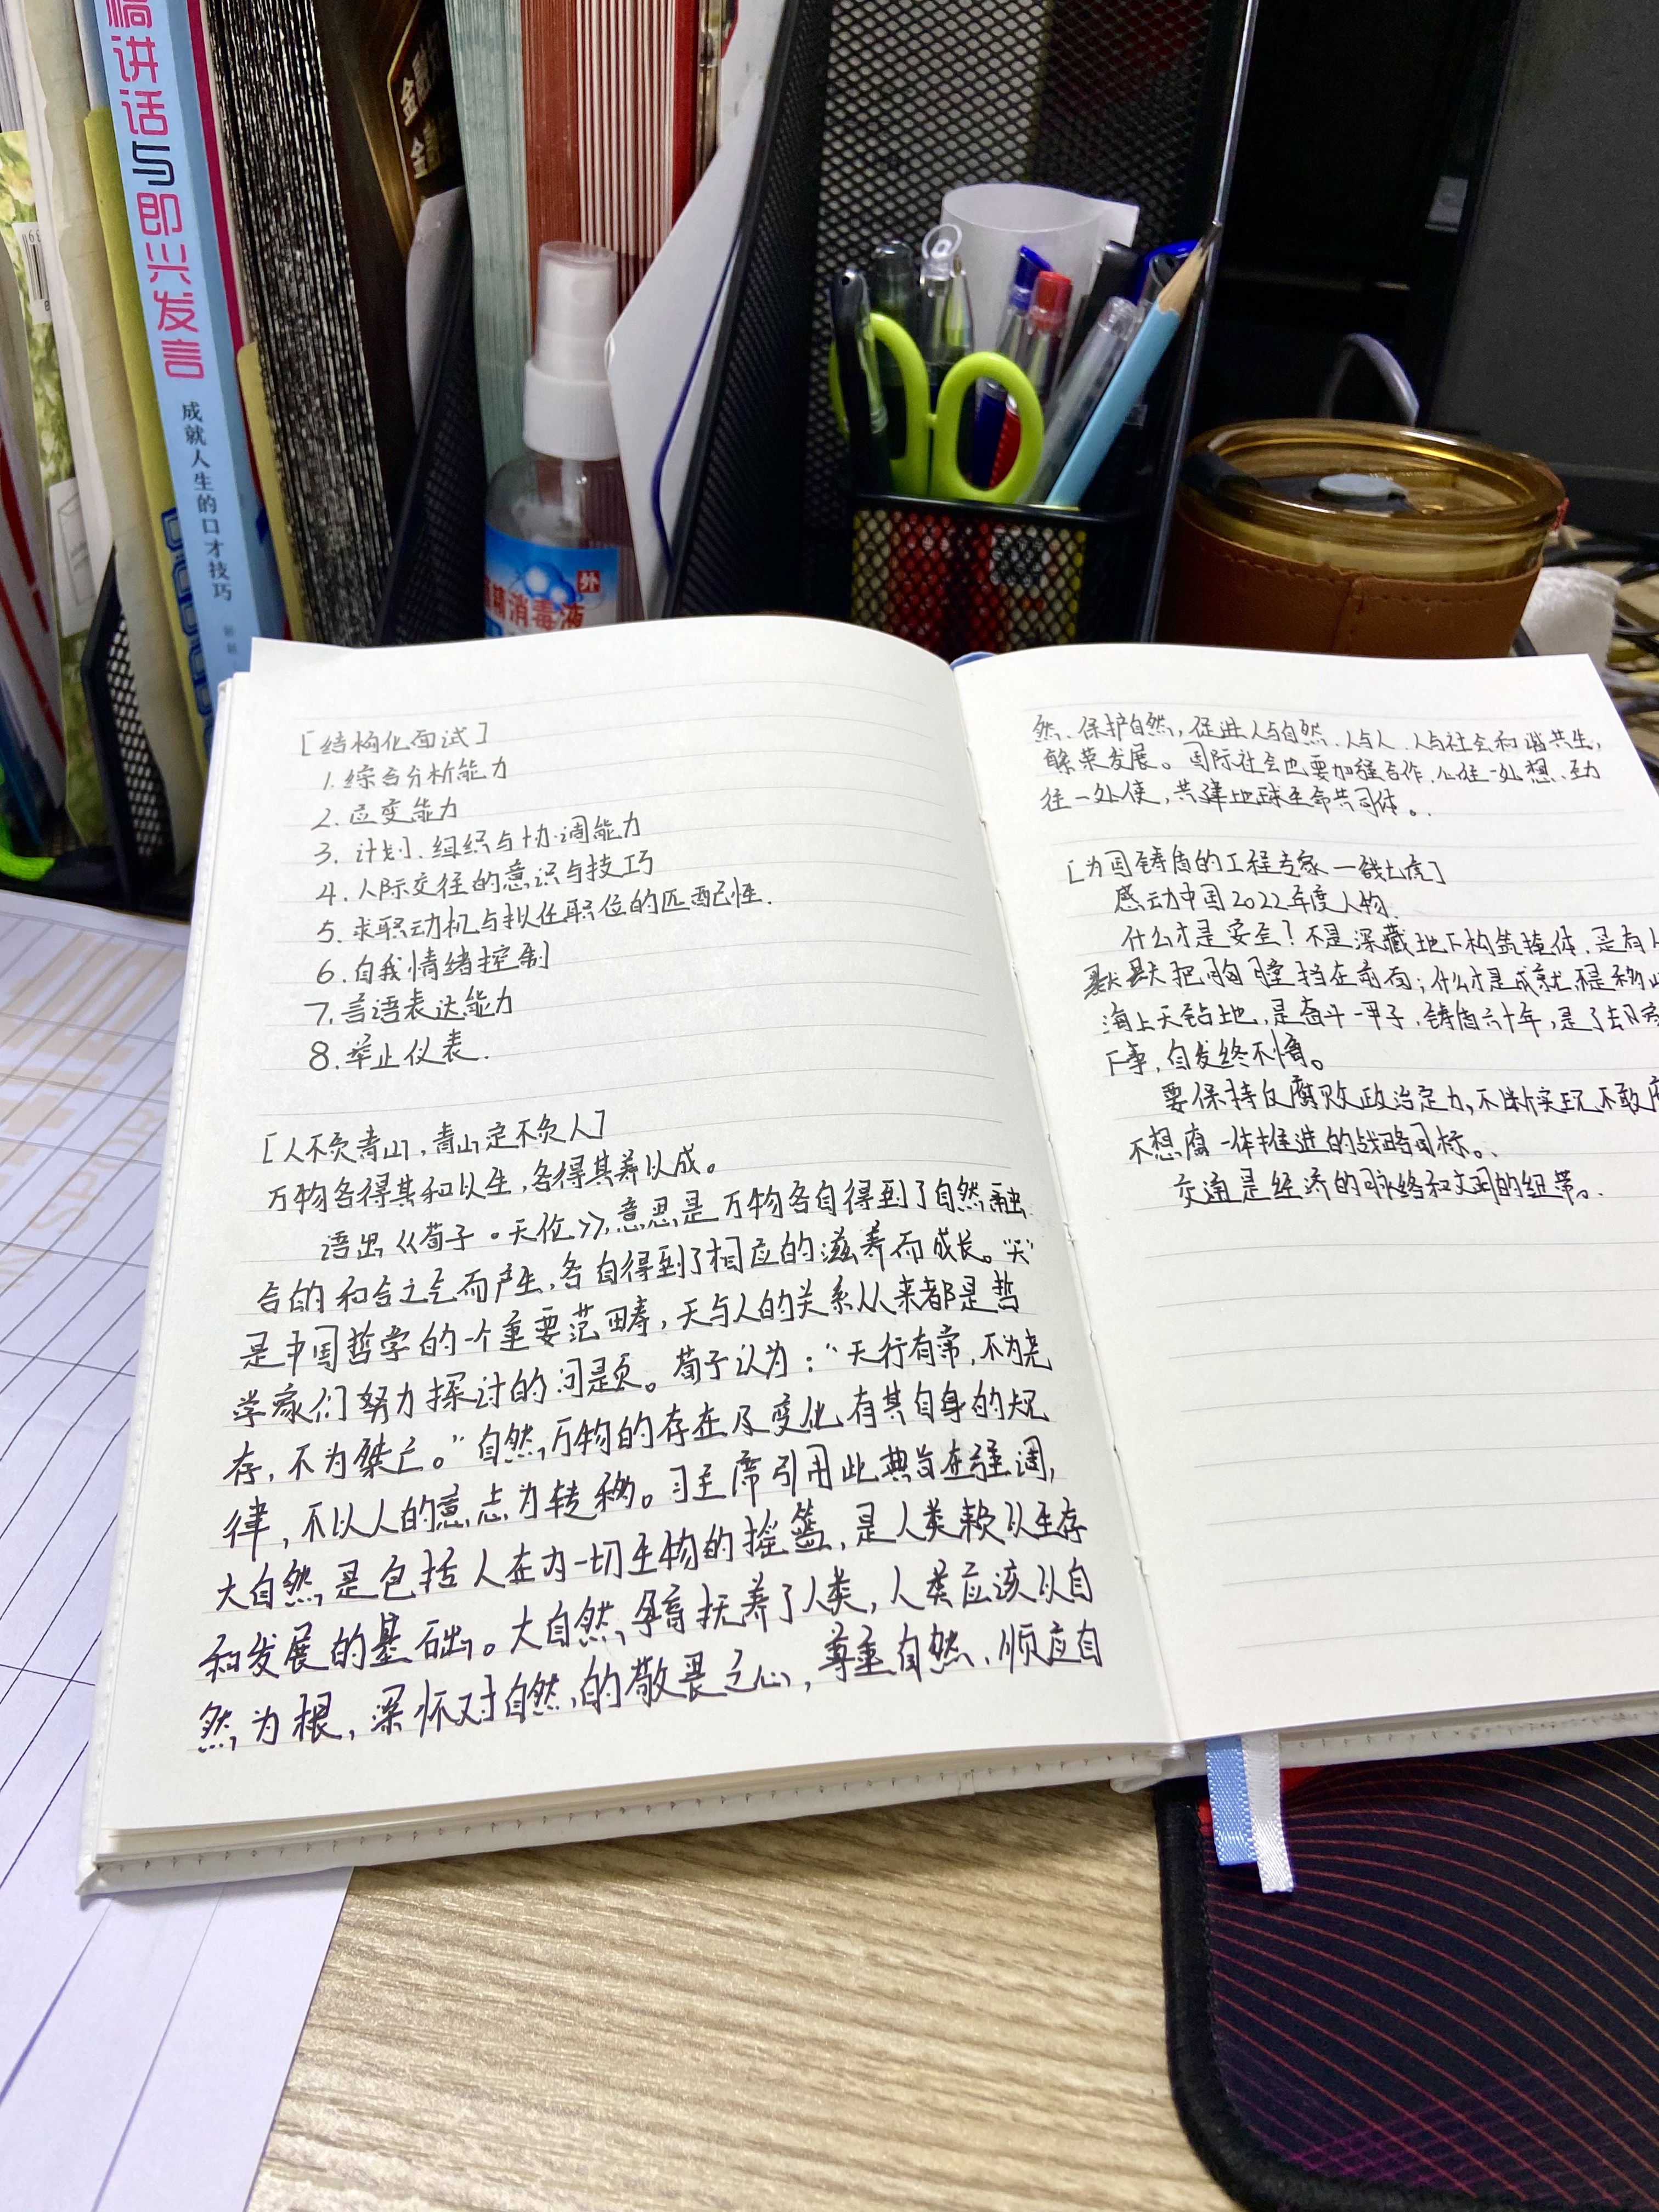 稿讲话与即兴发言
成就人生的口才技巧
金融
金融
外
精消毒液
[结构化面试]
1.综合分析能力
2.应变能力
3.计划、组织与协调能力
4.人际交往的意识与技巧
5.求职动机与拟任职位的匹配性.
6.自我情绪控制
7.言语表达能力
8.举止仪表.
[人不负青山,青山定不负人]
万物各得其和以生,各得其养以成。
语出《荀子·天伦》,意思是万物各自得到了自然融
合的和合之气而产生,各自得到了相应的滋养而成长。"天"
是中国哲学的一个重要范畴,天与人的关系从来都是哲
学家们努力探讨的问题。荀子认为:"天行有常,不为尧
存,不为桀亡。"自然,万物的存在及变化有其自身的规
律,不以人的意志为转移。习主席引用此典旨在强调,
大自然是包括人在内一切生物的摇篮,是人类赖以生存
和发展的基础。大自然孕育抚养了人类,人类应该以自
然为根,深怀对自然的敬畏之心,尊重自然、顺应自
然、保护自然,促进人与自然、人与人、人与社会和谐共生,
繁荣发展。国际社会也要加强合作,心往一处想、劲
往一处使,共建地球生命共同体。.
[为国铸盾的工程专家—钱七虎]
感动中国2022年度人物.
什么才是安全?不是深藏地下构筑掩体,是有人
默默把胸膛挡在前面;什么才是成就,不是移山
海上天钻地,是奋斗一甲子,铸盾六十年,是了却
下事,白发终不悔。
要保持反腐败政治定力,不断实现不敢腐
不想腐一体推进的战略目标。.
交通是经济的脉络和文明的纽带。.